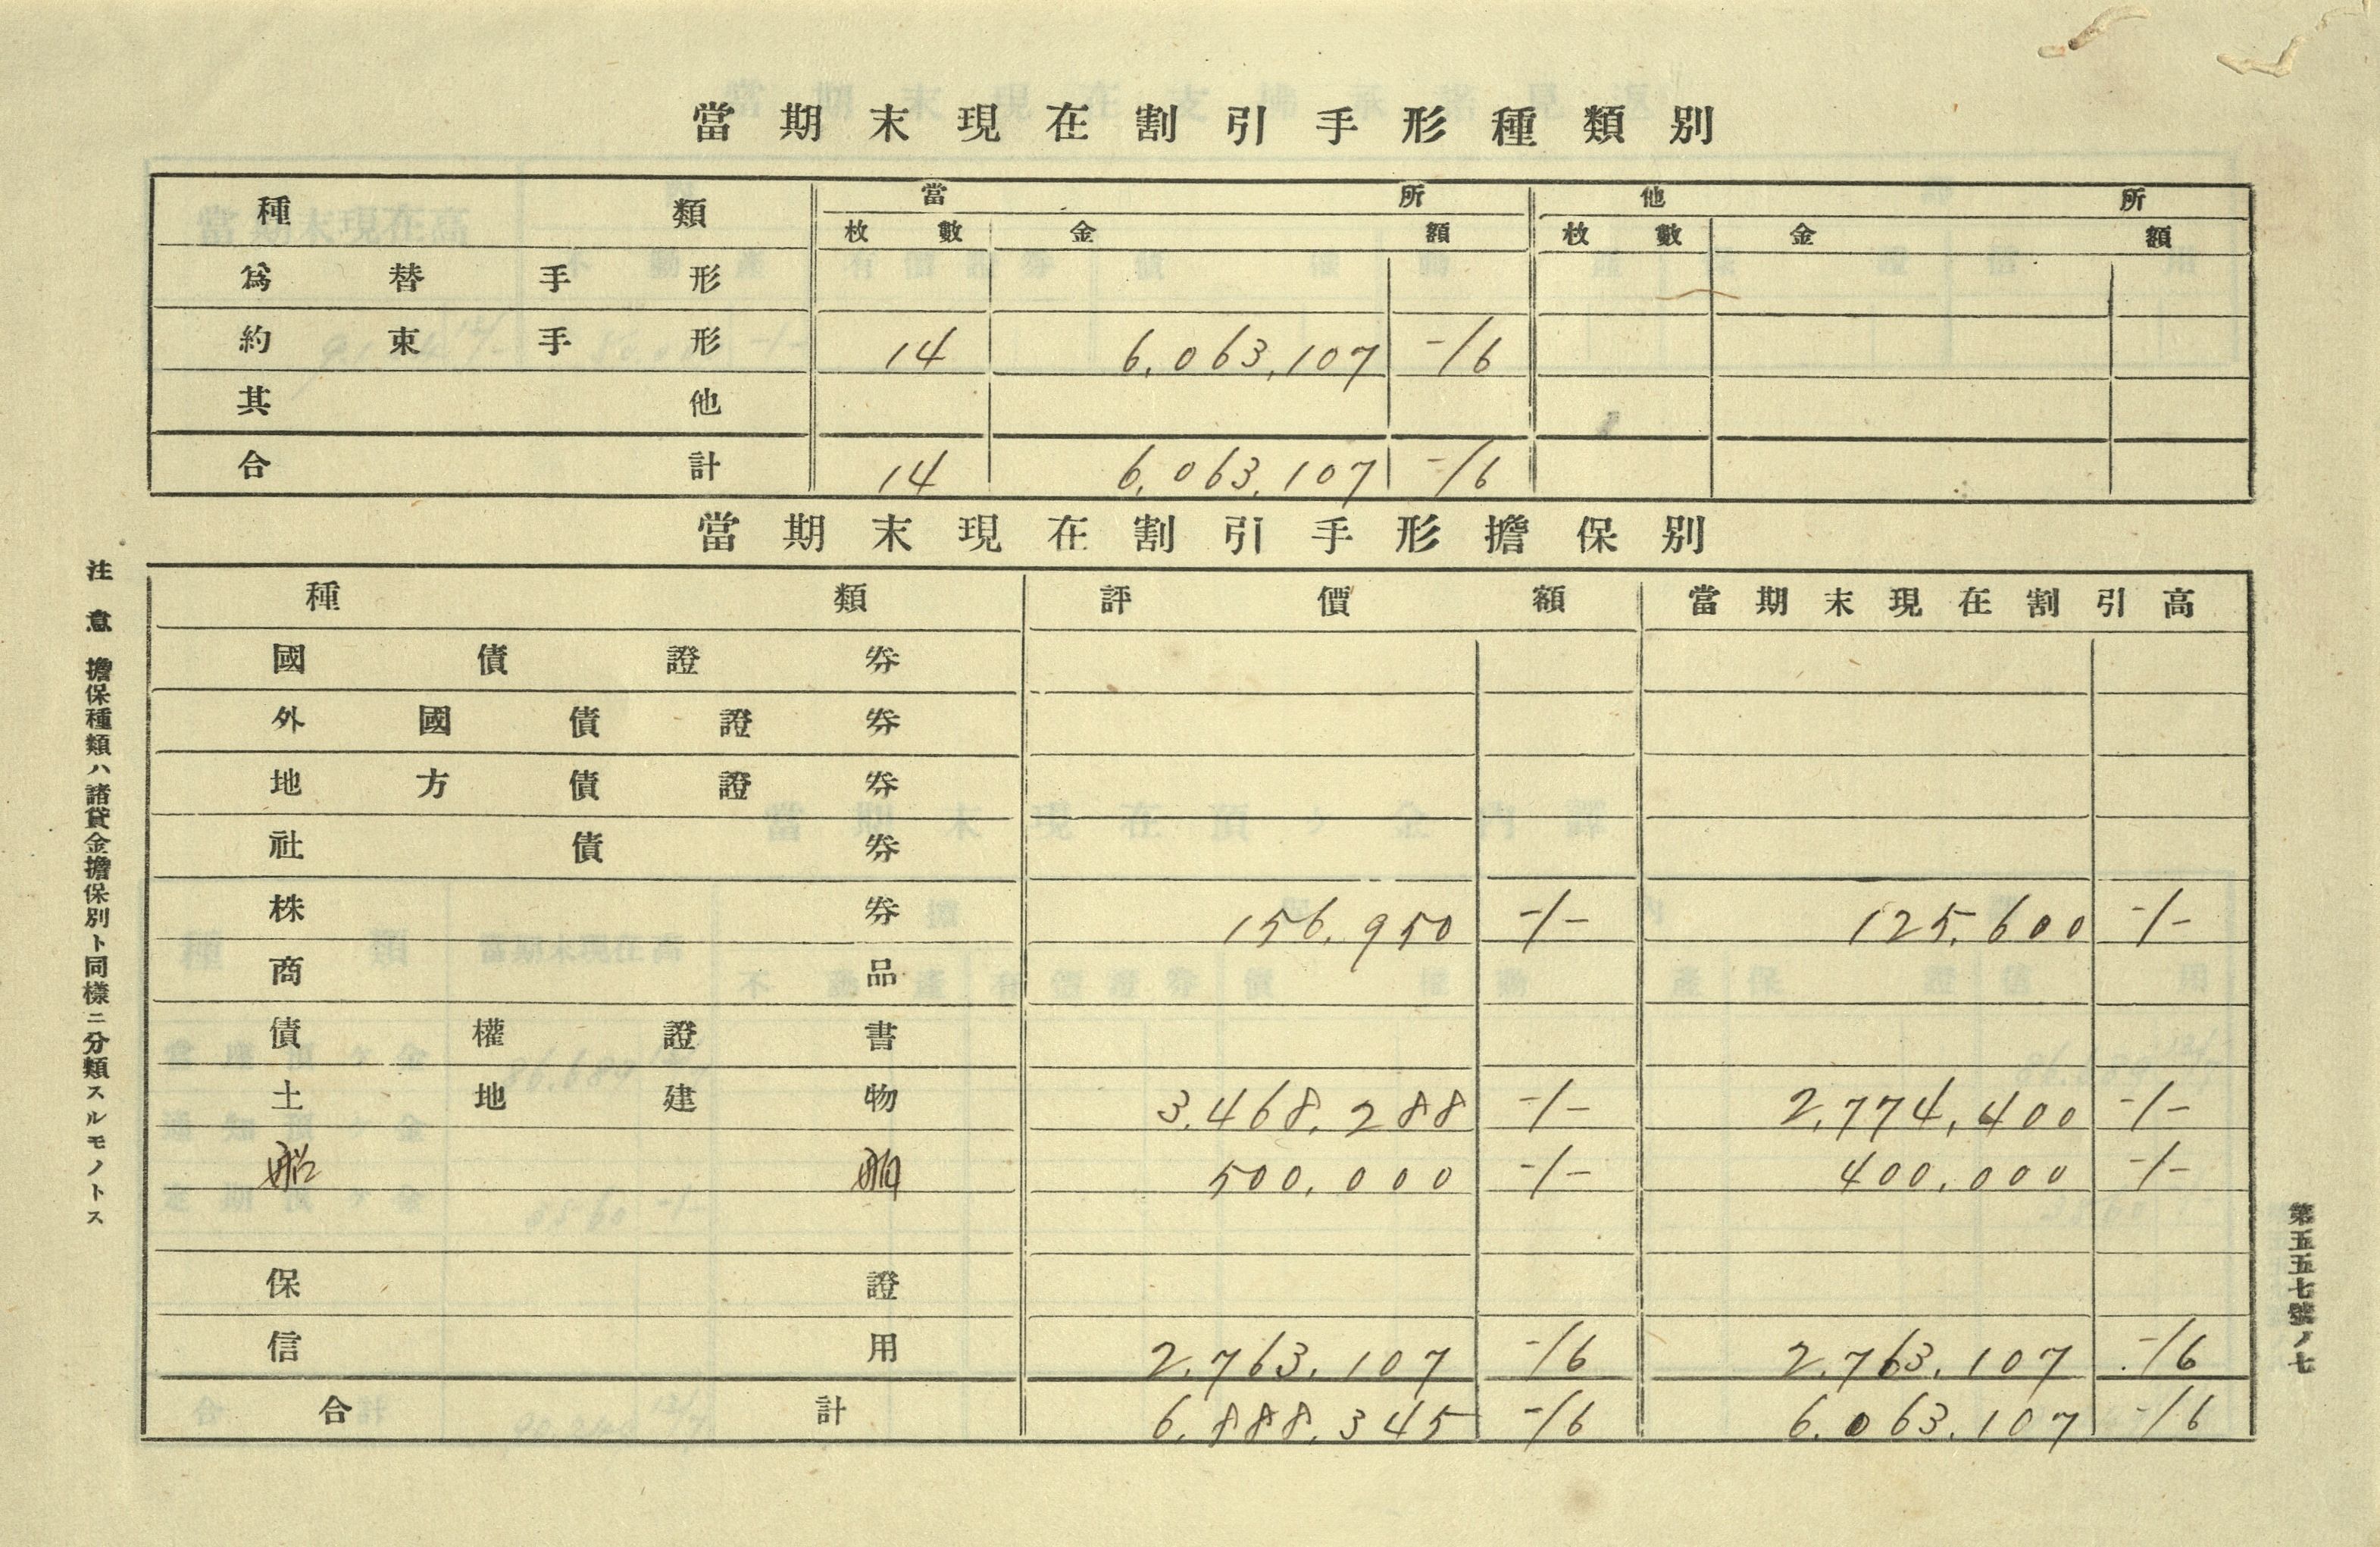 當期末現在割引手形種類別
種類 當所 他所
枚數 金額 枚數 金額
爲替手形
約束手形 14 6,063,107 -/6
其他
合計 14 6,063,107 -/6
當期末現在割引手形擔保別
種類 評價額 當期末現在割引高
國債證券
外國債證券
地方債證券
社債券
株券 156,950 -/- 125,600 -/-
商品
債權證書
土地建物 3,468,288 -/- 2,774,400 -/-
船舶 500,000 -/- 400,000 -/-
保證
信用 2,763,107 -/6 2,763,107 -/6
合計 6,888,345 -/6 6,063,107 -/6
注意 擔保種類ハ諸貸金擔保別ト同樣ニ分類スルモノトス
第五五七號ノ七